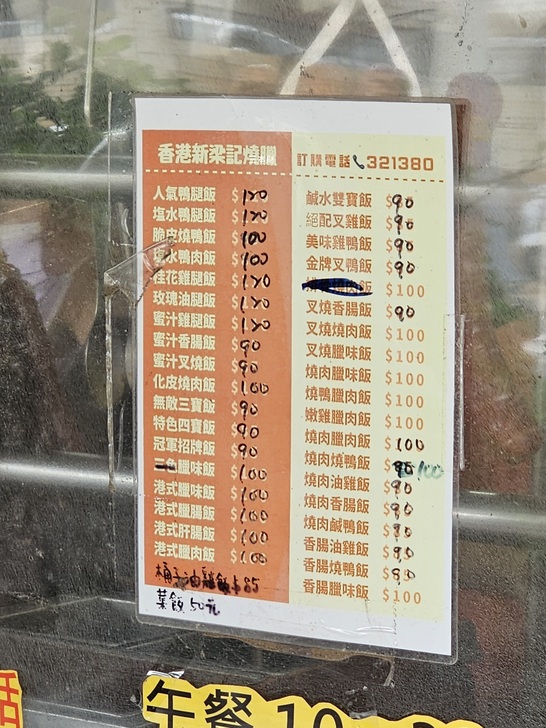 香港新梁記燒臘
訂購電話 321380
人氣鴨腿飯 $120
塩水鴨腿飯 $120
脆皮燒鴨飯 $100
水鴨肉飯 $100
桂花雞腿飯 $120
玫瑰油腿飯 $120
蜜汁雞腿飯 $120
蜜汁香腸飯 $90
蜜汁叉燒飯 $90
化皮燒肉飯 $100
無敵三寶飯 $90
特色四寶飯 $90
冠軍招牌飯 $90
臘味飯 $100
港式臘味飯 $100
港式臘腸飯 $100
港式肝腸飯 $100
港式臘肉飯 $100
桶子油雞飯$85
菜飯50元
鹹水雙寶飯 $90
絕配叉雞飯 $90
美味雞鴨飯 $90
金牌叉鴨飯 $90
飯 $100
叉燒香腸飯 $90
叉燒燒肉飯 $100
叉燒臘味飯 $100
燒肉臘味飯 $100
燒鴨臘肉飯 $100
嫩雞臘肉飯 $100
燒肉臘肉飯 $100
燒肉燒鴨飯 100
燒肉油雞飯 $90
燒肉香腸飯 $90
燒肉鹹鴨飯 $90
香腸油雞飯 $90
香腸燒鴨飯 $90
香腸臘味飯 $100
話
午餐10